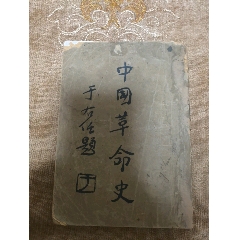 中國革命史
于右任題